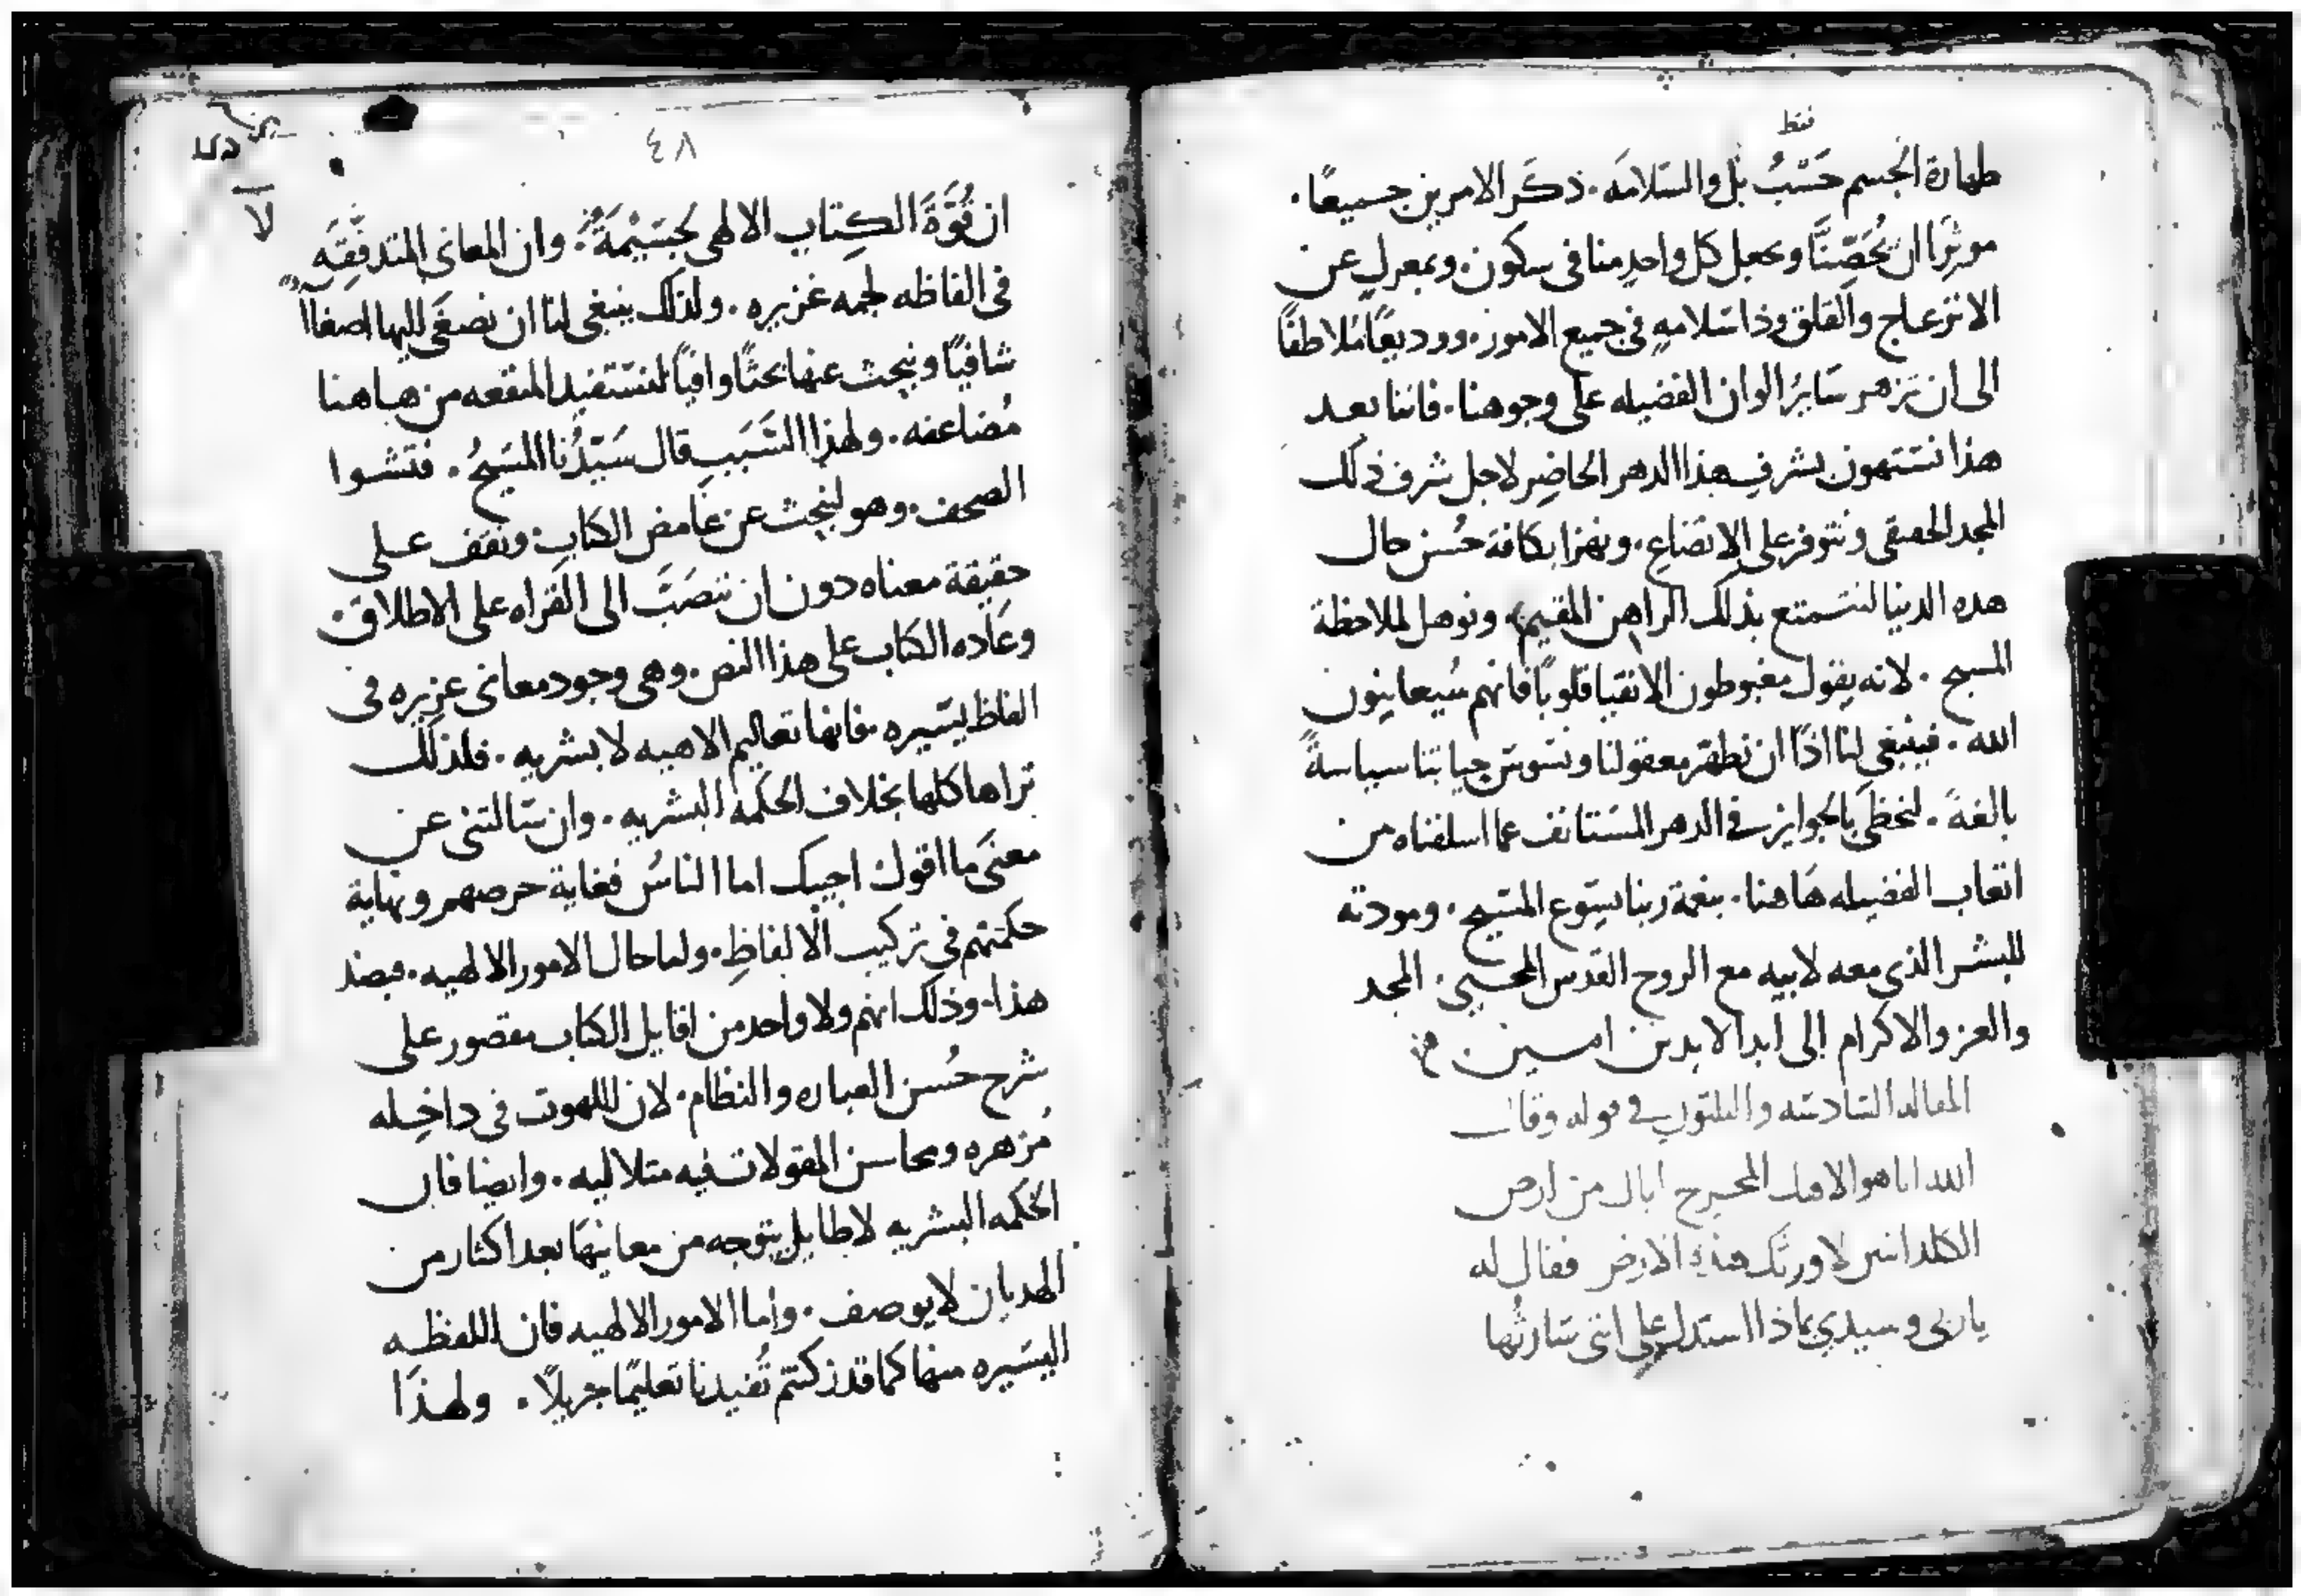 فقط
طهارة الجسم حَسْبُ بل والسَلامَه. ذكَر الامرين جميعًا.
موثِرًا ان يُحَصِّنَّا ويجعل كل واحدٍ منا فى سكون. وبمعزلٍ عن
الانزعاج والقلق وذا سَلامهٍ في جميع الامور. ووديعًا مُلاطفًا
الى ان تزهر سَايرُ الوان الفضيله على وجوهنا. فاننا بعد
هذا نستهون بشرفِ هذا الدهر الحاضِر لاجل شرف ذلك
المجد الحقيقى ونتوفر على الاتضاع. ونهزا بكافة حُسن حال
هده الدنيا لنستمتع بذلك الراهن المقيم، ونوهل لملاحظة
المسيح. لانه يقول مغبوطون الانقيا قلوبًا فانهم سُيعاينون
الله. فينبغى لنا اذًا ان نطهّر عقولنا ونسوس حياتنا سياسةً
بالغةً. لنحظَى بالجوايز في الدهر المسَتانف عما اسلفناه من
اتعاب الفضيله هَاهنا. بنعمة ربنا يسَوع المسَيح. ومودته
للبشر الذي معه لابيه مع الروح القدس المحيي. المجد
والعز والاكرام الى ابد الابدين امـين
المقاله السَادسَه والثلثون في قوله وقال
الله انا هو الاهك المخرج اياك من ارض
الكلدانين لاورثك هذه الارض فقال له
ياربى وسيدي بماذا استدل على انني سَارثُها
٤٨
لا
ان قُوَّةَ الكِتاب الالهى لجَسَيْمَةٌ. وان المعانى المتدفّقَه
فى الفاظه لجمه غزيره. ولذلك ينبغى لنا ان نصغَى اليها اصغاًا
شافيًا ونبحث عنها بحثًا وافيًا لنسَتفيد المنفعه من هاهنا
مُضاعفه. ولهذا السَبَبِ قال سَيّدُنا المسَيحُ. فتشوا
الصحف. وهو لنبحث عن غامض الكتاب ونقف على
حقيقة معناه دون ان ننصَبَّ الى القراه على الاطلاق.
وعَاده الكتاب على هذا النص. وهى وجود معانى غزيره فى
الفاظ يسَيره فانها تعاليم الاهيه لا بشريه. فلذلك
تراها كلها بخلاف الحكمه البشريه. وان سَالتنى عن
معنَى ما اقول اجيبك اما الناسُ فغاية حرصهم ونهاية
حكمتهم في تركيب الالفاظِ. واما حال الامور الالهيه. فبضد
هذا. وذلك انهم ولا واحد من اقايل الكتاب مقصور على
شرح حُسن العباره والنظام. لان اللهوت فى داخِله
مُزهره ومحاسن المقولات فيه متلاليه. وايضا فان
الحكمه البشريه لا طايل يتوجه من معانيها بعد اكثار من
الهديان لا يوصف. واما الامور الالهيه فان اللفظه
اليسَيره منها كما قد زكنتم تُفيدنا تعليمًا جزيلاً. ولهذَا